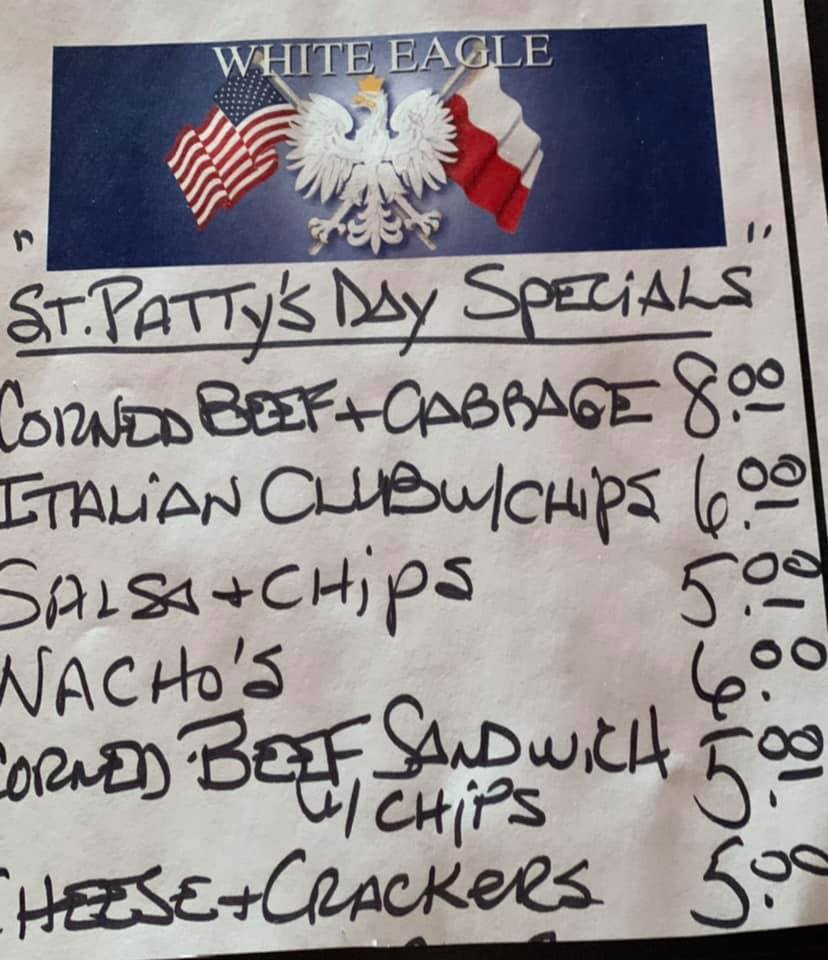 WHITE EAGLE
" "
ST. PATTY'S DAY SPECIALS
CORNED BEEF + CABBAGE 8.00
ITALIAN CLUB W/CHIPS 6.00
SALSA + CHIPS 5.00
NACHO'S 6.00
CORNED BEEF SANDWICH 5.00
W/ CHIPS
CHEESE + CRACKERS 5.00